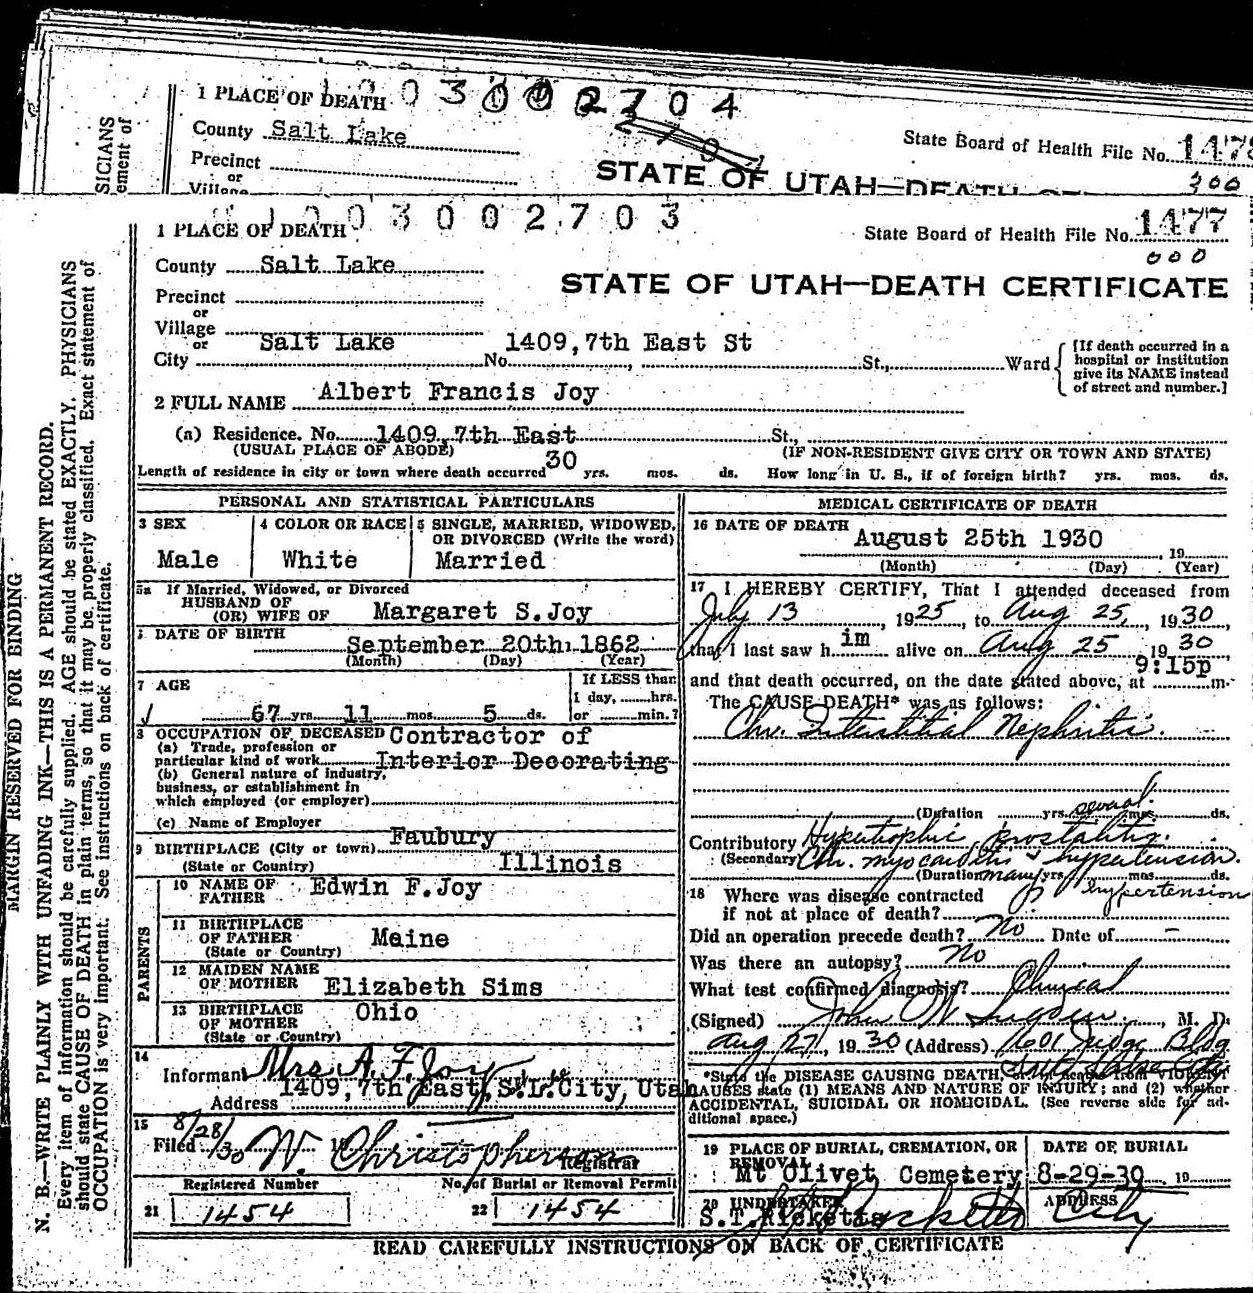 1 PLACE OF DEATH
1003002704
County Salt Lake
State Board of Health File No. 1478
300
Precinct
or
Village
STATE OF UTAH—DEATH
SICIANS
ement of
1003002703
1 PLACE OF DEATH
State Board of Health File No. 1477
000
County Salt Lake
STATE OF UTAH—DEATH CERTIFICATE
Precinct
or
Village
or
City Salt Lake No. 1409, 7th East St St., Ward
[If death occurred in a
hospital or institution
give its NAME instead
of street and number.]
2 FULL NAME Albert Francis Joy
(a) Residence. No. 1409, 7th East St.,
(USUAL PLACE OF ABODE) (IF NON-RESIDENT GIVE CITY OR TOWN AND STATE)
Length of residence in city or town where death occurred 30 yrs. mos. ds. How long in U. S., if of foreign birth? yrs. mos. ds.
PERSONAL AND STATISTICAL PARTICULARS
3 SEX
Male
4 COLOR OR RACE
White
5 SINGLE, MARRIED, WIDOWED,
OR DIVORCED (Write the word)
Married
5a If Married, Widowed, or Divorced
HUSBAND OF
(OR) WIFE OF Margaret S. Joy
DATE OF BIRTH September 20th, 1862
(Month) (Day) (Year)
7 AGE
67 yrs 11 mos. 5 ds.
If LESS than
1 day, hrs.
or min.?
8 OCCUPATION OF DECEASED Contractor of
(a) Trade, profession or
particular kind of work Interior Decorating
(b) General nature of industry,
business, or establishment in
which employed (or employer)
(c) Name of Employer
9 BIRTHPLACE (City or town) Faubury
(State or Country) Illinois
PARENTS
10 NAME OF
FATHER Edwin F. Joy
11 BIRTHPLACE
OF FATHER Maine
(State or Country)
12 MAIDEN NAME
OF MOTHER Elizabeth Sims
13 BIRTHPLACE Ohio
OF MOTHER
(State or Country)
14
Informant Mrs A. F. Joy
Address 1409, 7th East, S. L. City, Utah
15
Filed 8/28/30 W. Christopherson
Registrar
Registered Number No. of Burial or Removal Permit
21 1454 22 1454
MEDICAL CERTIFICATE OF DEATH
16 DATE OF DEATH August 25th 1930, 19
(Month) (Day) (Year)
17 I HEREBY CERTIFY, That I attended deceased from
July 13, 1925, to Aug 25, 1930,
that I last saw him alive on Aug 25 1930
and that death occurred, on the date stated above, at 9:15p m.
The CAUSE DEATH* was as follows:
Chr. Interstitial Nephritis.
(Duration yrs. several mos. ds.
Contributory Hypertrophic prostatitis.
(Secondary Chr. myocarditis & hypertension.
(Duration many yrs. mos. ds.
of hypertension
18 Where was disease contracted
if not at place of death?
Did an operation precede death? No Date of —
Was there an autopsy? No
What test confirmed diagnosis? Clinical
(Signed) John W Sugden, M. D.
Aug 27, 1930 (Address) 601 Judge Bldg
*State the DISEASE CAUSING DEATH
CAUSES state (1) MEANS AND NATURE OF INJURY; and (2) whether
ACCIDENTAL, SUICIDAL OR HOMICIDAL. (See reverse side for ad-
ditional space.)
19 PLACE OF BURIAL, CREMATION, OR
REMOVAL
Mt Olivet Cemetery
DATE OF BURIAL
8-29-30, 19
20 UNDERTAKER
S. T. Ricketts
ADDRESS
City
READ CAREFULLY INSTRUCTIONS ON BACK OF CERTIFICATE
MARGIN RESERVED FOR BINDING
N. B.—WRITE PLAINLY WITH UNFADING INK—THIS IS A PERMANENT RECORD.
Every item of information should be carefully supplied. AGE should be stated EXACTLY. PHYSICIANS
should state CAUSE OF DEATH in plain terms, so that it may be properly classified. Exact statement of
OCCUPATION is very important. See instructions on back of certificate.